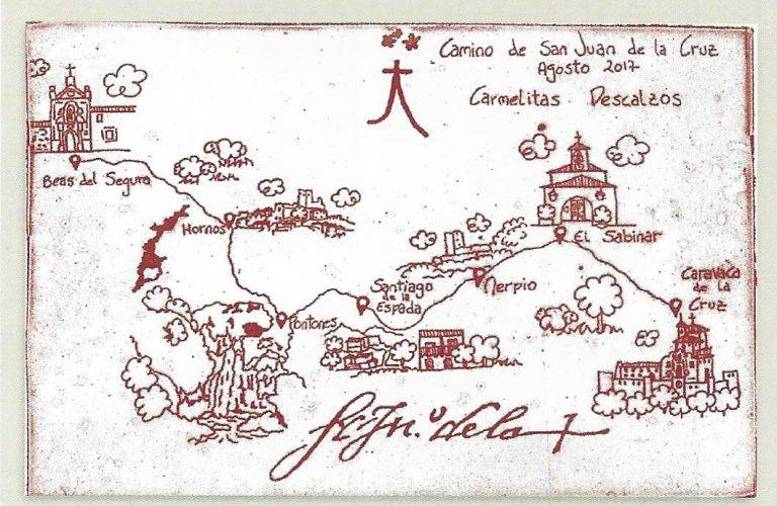 Camino de San Juan de la Cruz
Agosto 2017
Carmelitas Descalzos
Beas del Segura
Hornos
El Sabinar
Santiago
de la
Espada
Nerpio
Caravaca
de la
Cruz
Pontones